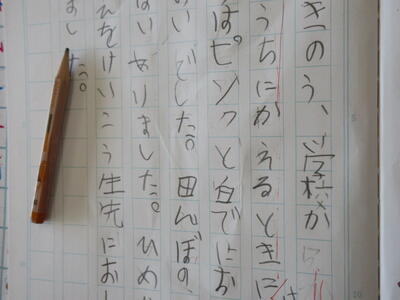 きのう、学校か
うちにかえるときに
はピンクと白でにお
いでした。田んぼの、
はいやりました。ひめ
ひをけいこう生先におし
ました。